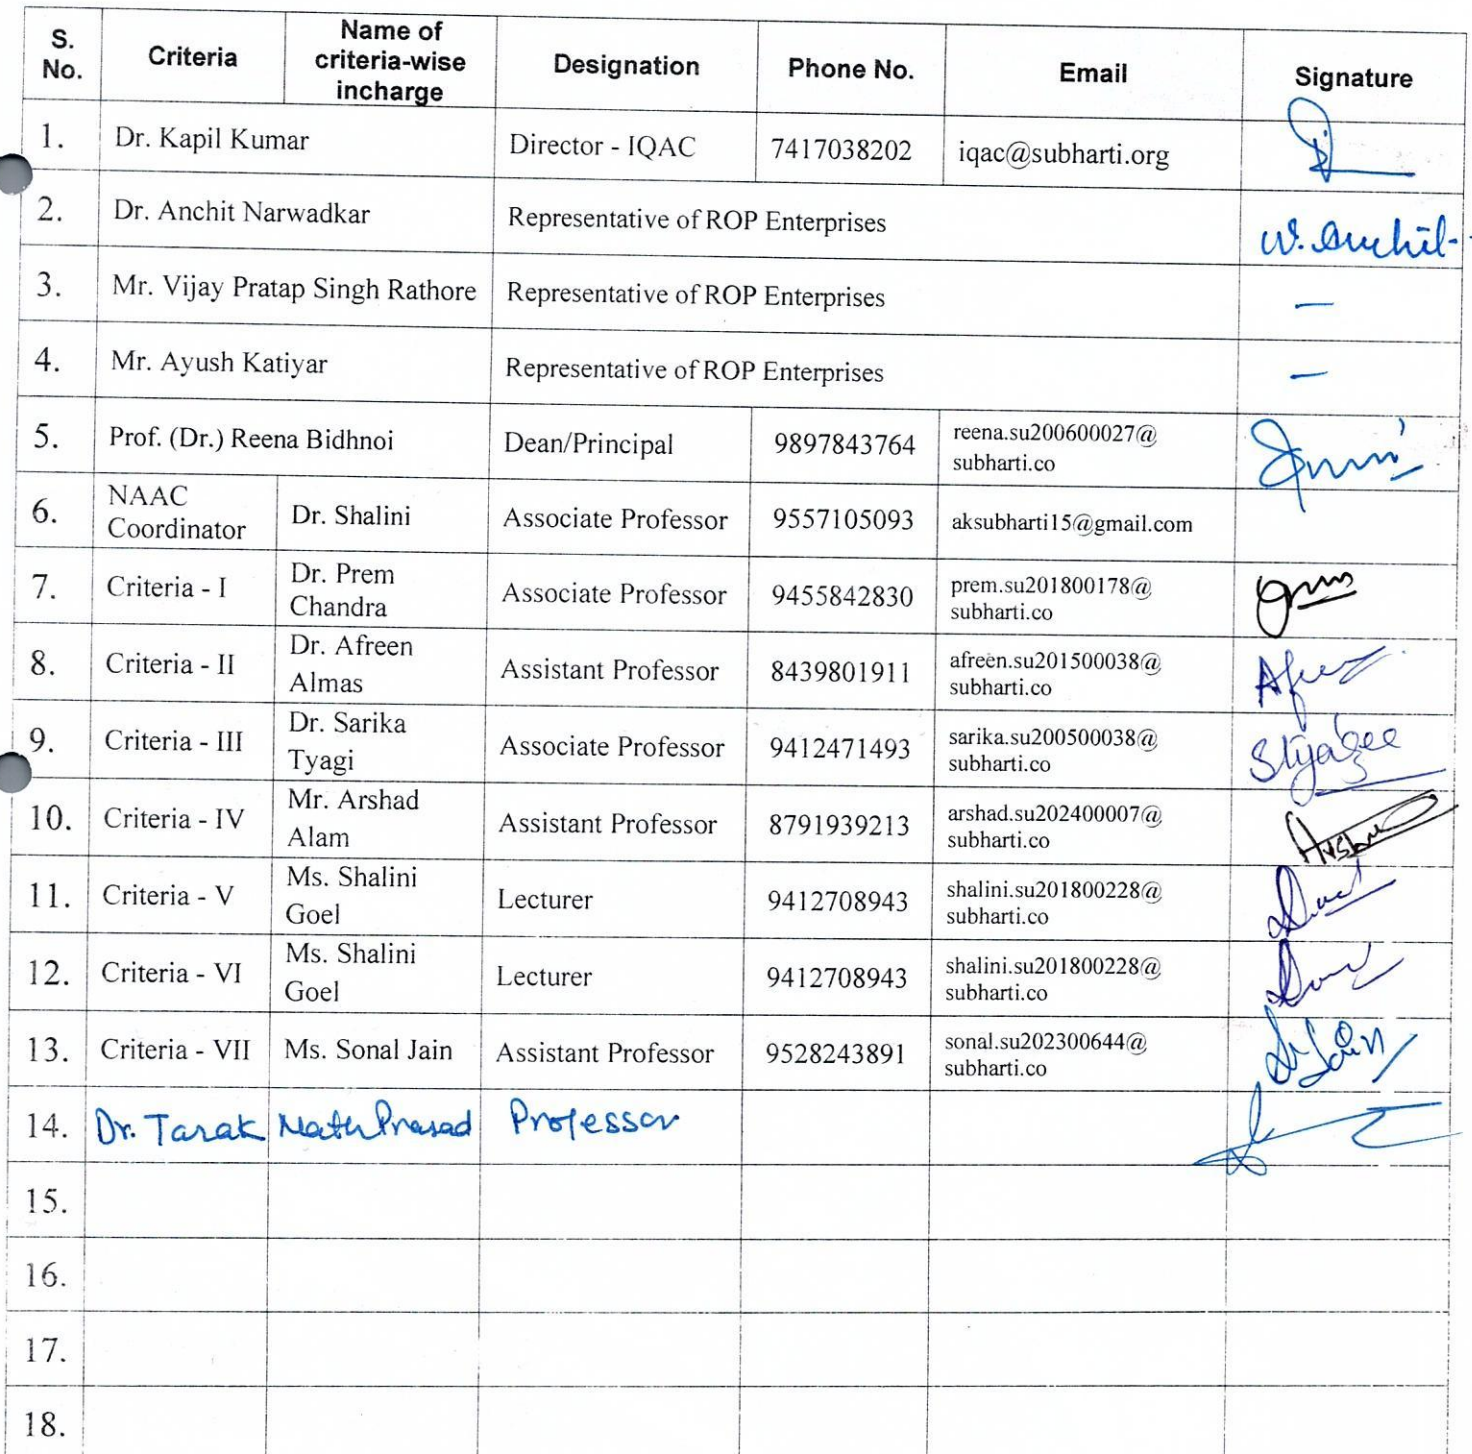 S. No. Criteria Name of criteria-wise incharge Designation Phone No. Email Signature
1. Dr. Kapil Kumar Director - IQAC 7417038202 iqac@subharti.org
2. Dr. Anchit Narwadkar Representative of ROP Enterprises
3. Mr. Vijay Pratap Singh Rathore Representative of ROP Enterprises —
4. Mr. Ayush Katiyar Representative of ROP Enterprises —
5. Prof. (Dr.) Reena Bidhnoi Dean/Principal 9897843764 reena.su200600027@subharti.co
6. NAAC Coordinator Dr. Shalini Associate Professor 9557105093 aksubharti15@gmail.com
7. Criteria - I Dr. Prem Chandra Associate Professor 9455842830 prem.su201800178@subharti.co
8. Criteria - II Dr. Afreen Almas Assistant Professor 8439801911 afreen.su201500038@subharti.co
9. Criteria - III Dr. Sarika Tyagi Associate Professor 9412471493 sarika.su200500038@subharti.co
10. Criteria - IV Mr. Arshad Alam Assistant Professor 8791939213 arshad.su202400007@subharti.co
11. Criteria - V Ms. Shalini Goel Lecturer 9412708943 shalini.su201800228@subharti.co
12. Criteria - VI Ms. Shalini Goel Lecturer 9412708943 shalini.su201800228@subharti.co
13. Criteria - VII Ms. Sonal Jain Assistant Professor 9528243891 sonal.su202300644@subharti.co
14. Dr. Tarak Nath Prasad Professor
15.
16.
17.
18.